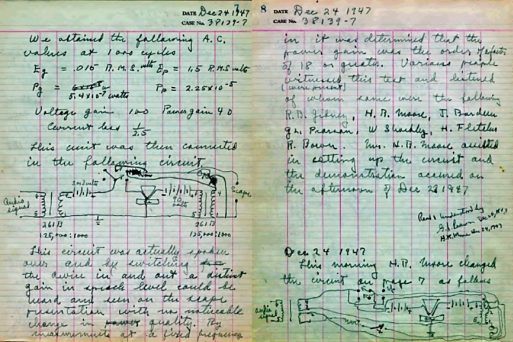 DATE Dec 24 1947
CASE No. 38139-7
We attained the following A.C.
values at 1000 cycles
Eg = .015 R.M.S. volts Ep = 1.5 R.M.S volts
Pg = 5.4×10⁻⁷ watts Pp = 2.25×10⁻⁵
Voltage gain 100 Power gain 40
Current loss 1/2.5
This unit was then connected
in the following circuit
Audio signal
261B
125,000:1000
261B
125,000:1000
Scope
This circuit was actually spoken
over and by switching
the device in and out a distinct
gain in speech level could be
heard and seen on the scope
presentation with no noticeable
change in quality. By
measurements at a fixed frequency
8 DATE Dec 24 1947
CASE No. 38139-7
in it was determined that the
power gain was the order of
of 18 or greater. Various people
witnessed this test and listened
of whom some were the following
R.B. Gibney, H.R. Moore, J. Bardeen
G.L. Pearson, W Shockley, H. Fletcher
R. Bown. Mr. H.R. Moore assisted
in setting up the circuit and
the demonstration occured on
the afternoon of Dec 23 1947
Read & understood by
G.L. Pearson Dec 24, 1947
H.R. Moore Dec 24, 1947
Dec 24 1947
This morning H.R. Moore changed
the circuit on Page 7 as follows
audio signal